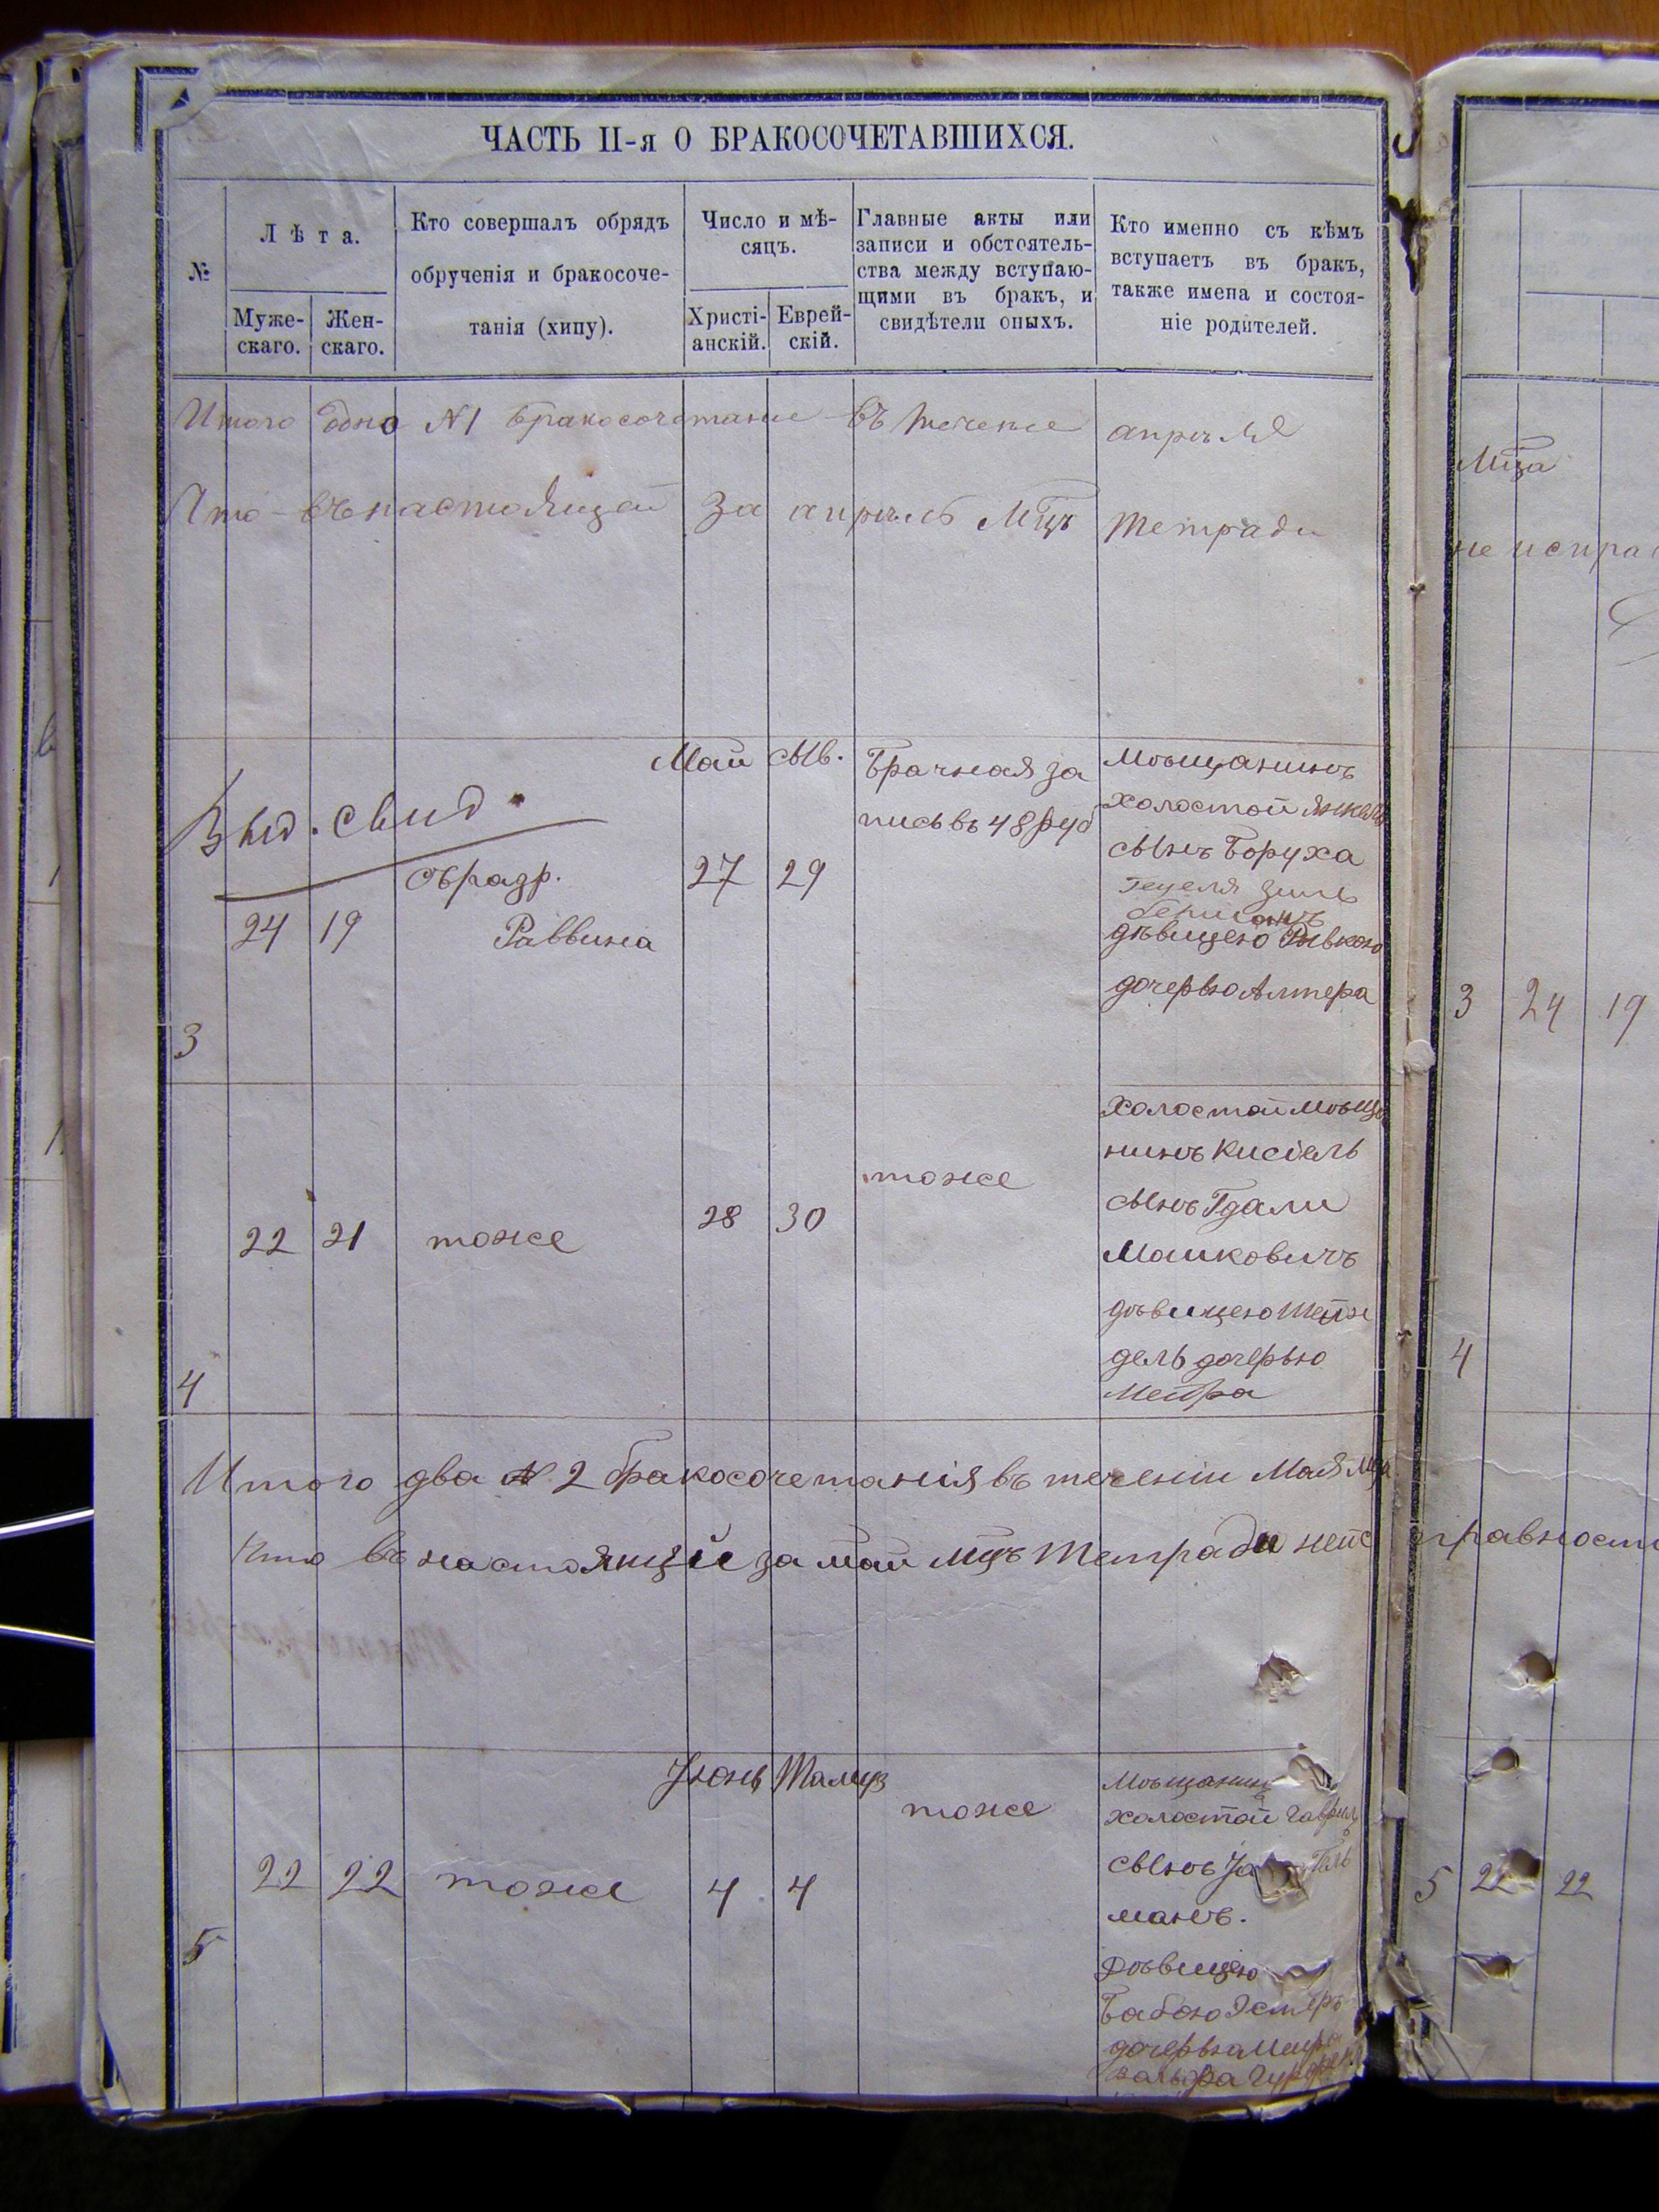 ЧАСТЬ II-я О БРАКОСОЧЕТАВШИХСЯ.
№
Лѣта.
Муже-
скаго.
Жен-
скаго.
Кто совершалъ обрядъ
обрученія и бракосоче-
танія (хипу).
Число и мѣ-
сяцъ.
Христі-
анскій.
Еврей-
скій.
Главные акты или
записи и обстоятель-
ства между вступаю-
щими въ бракъ, и
свидѣтели оныхъ.
Кто именно съ кѣмъ
вступаетъ въ бракъ,
также имена и состоя-
ніе родителей.
Итого одно №1 бракосочетание въ течение апрѣля
Мца
Что въ настоящей за апрѣль Мцъ тетради
не испра
Выд. свид.
3
24 19
съ разр.
Раввина
Май Сив.
27 29
Брачная за
пись въ 48 руб
мѣщанинъ
холостой Янкель
сынъ Боруха
Гецеля Зиль
берманъ
дѣвицею Ривкою
дочерью Алтера
3 24 19
4
22 21
тоже
28 30
тоже
Холостой мѣща
нинъ Кисіель
сынъ Гдали
Машковичъ
дѣвицею Шейн
дель дочерью
Меера
4
Итого два № 2 бракосочетанія въ теченіи Мая Мца
Что въ настоящей за май мцъ тетради неис
правности
5
22 22
тоже
Іюнь Тамуз
4 4
тоже
Мѣщанинъ
холостой Гаврил
сынъ
манъ.
Дѣвицею
Бабою Эстеръ
дочерью Меира
5 22 22